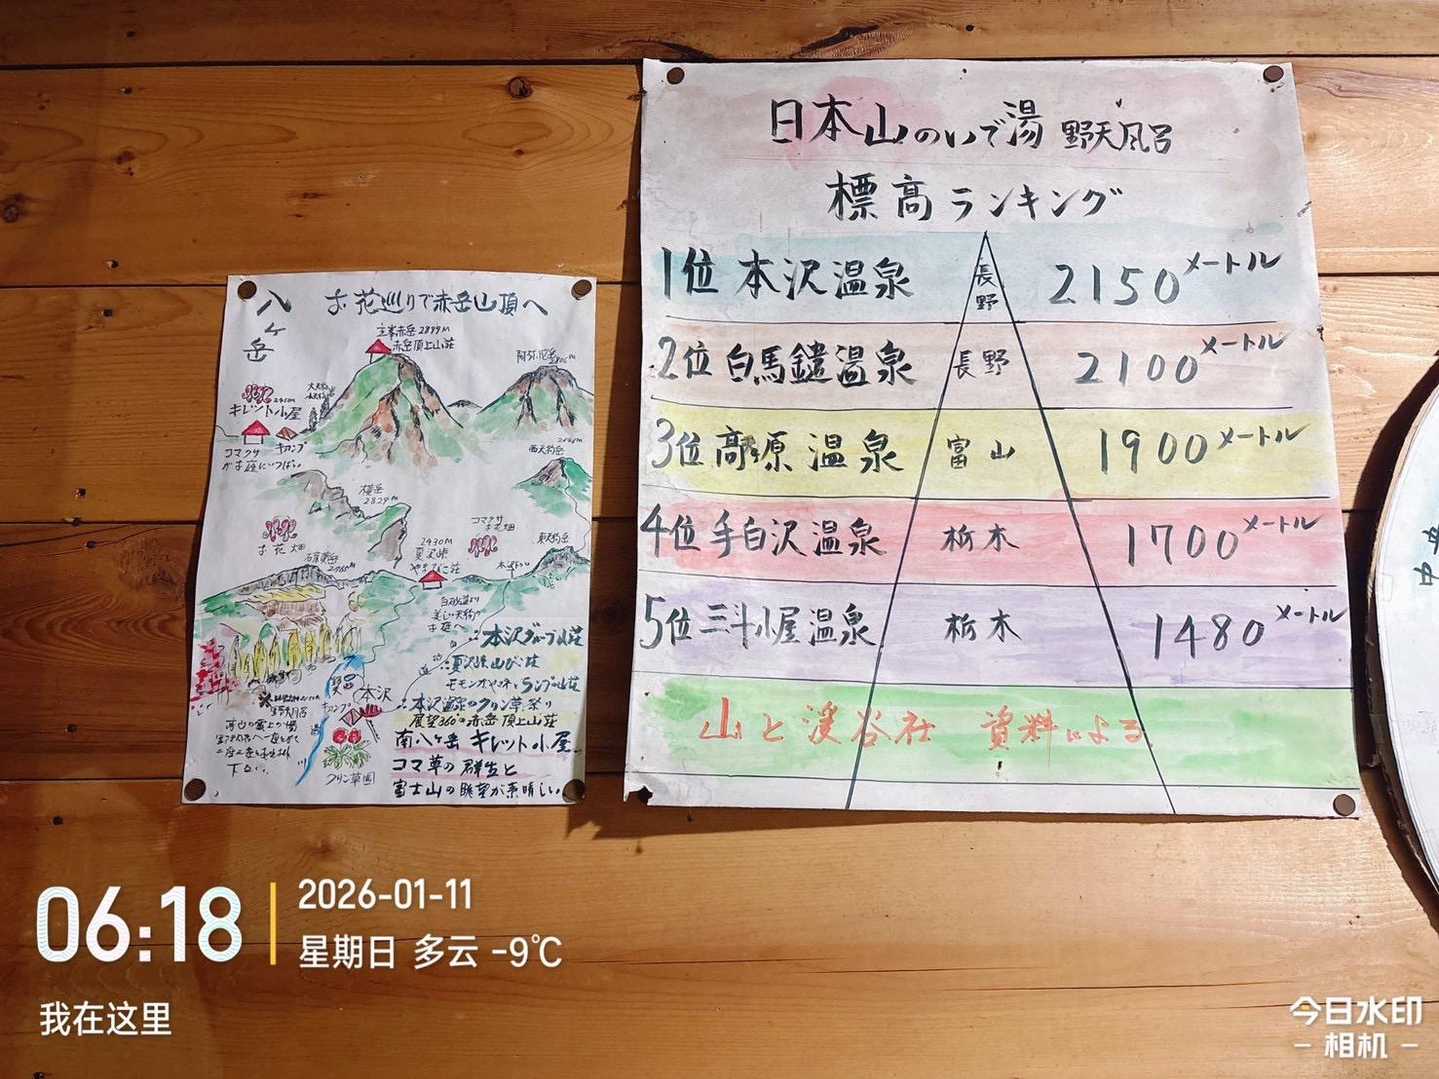 八ヶ岳
お花巡りで赤岳山頂へ
主峯赤岳 2899M
赤岳頂上山荘
阿弥陀岳
キレット小屋
キャンプ
コマクサ
がお庭にいっぱい
西天狗岳
横岳
2829M
コマクサ
お花畑
お花畑
2430M
夏沢峠
やまびこ荘
東天狗岳
硫黄岳
本沢グループ山荘
夏沢峠山びこ荘
モモンガやすらぐランプの山荘
本沢温泉のクリン草祭り
展望360°の赤岳頂上山荘
南八ヶ岳 キレット小屋
コマ草の群生と
富士山の眺望が素晴しい。
本沢
キャンプ
クリン草園
日本山のいで湯 野天風呂
標高ランキング
1位 本沢温泉 長野 2150メートル
2位 白馬鑓温泉 長野 2100メートル
3位 高原温泉 富山 1900メートル
4位 手白沢温泉 栃木 1700メートル
5位 三斗小屋温泉 栃木 1480メートル
山と渓谷社 資料による
06:18
2026-01-11
星期日 多云 -9℃
我在这里
今日水印
相机